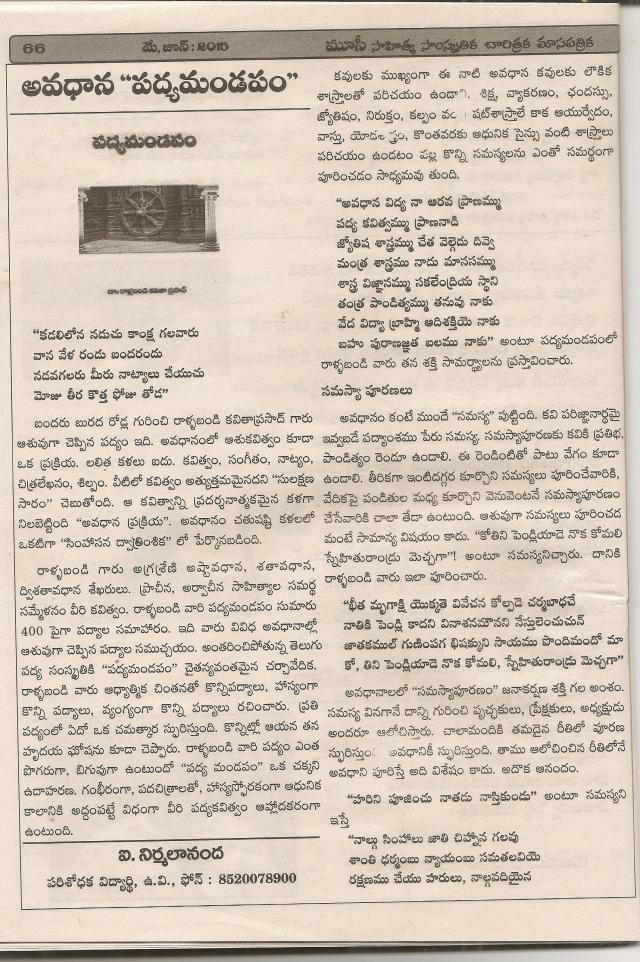 66 మే, జూన్ : 2015 మూసీ సాహిత్య సాంస్కృతిక చారిత్రక మాసపత్రిక
అవధాన “పద్యమండపం”
పద్యమండపం
డా॥ రాళ్లబండి కవితా ప్రసాద్
“కడలిలోన నడుచు కాంక్ష గలవారు
వాన వేళ రండు బందరందు
నడవగలరు మీరు నాట్యాలు చేయుచు
మోజు తీర కొత్త ఫోజు తోడ”
బందరు బురద రోడ్ల గురించి రాళ్ళబండి కవితాప్రసాద్ గారు
ఆశువుగా చెప్పిన పద్యం ఇది. అవధానంలో ఆశుకవిత్వం కూడా
ఒక ప్రక్రియ. లలిత కళలు ఐదు. కవిత్వం, సంగీతం, నాట్యం,
చిత్రలేఖనం, శిల్పం. వీటిలో కవిత్వం అత్యుత్తమమైనదని “సులక్షణ
సారం” చెబుతోంది. ఆ కవిత్వాన్ని ప్రదర్శనాత్మకమైన కళగా
నిలబెట్టింది “అవధాన ప్రక్రియ”. అవధానం చతుషష్టి కళలలో
ఒకటిగా “సింహాసన ద్వాత్రింశిక” లో పేర్కొనబడింది.
రాళ్ళబండి గారు అగ్రశ్రేణి అష్టావధాన, శతావధాన,
ద్విశతావధాన శేఖరులు. ప్రాచీన, అర్వాచీన సాహిత్యాల సమర్థ
సమ్మేళనం వీరి కవిత్వం. రాళ్ళబండి వారి పద్యమండపం సుమారు
400 పైగా పద్యాల సమాహారం. ఇది వారు వివిధ అవధానాల్లో
ఆశువుగా చెప్పిన పద్యాల సముచ్చయం. అంతరించిపోతున్న తెలుగు
పద్య సంస్కృతికి “పద్యమండపం” చైతన్యవంతమైన చర్చావేదిక.
రాళ్ళబండి వారు ఆధ్యాత్మిక చింతనతో కొన్నిపద్యాలు, హాస్యంగా
కొన్ని పద్యాలు, వ్యంగ్యంగా కొన్ని పద్యాలు రచించారు. ప్రతి
పద్యంలో ఏదో ఒక చమత్కార స్ఫురిస్తుంది. కొన్నిట్లో ఆయన తన
హృదయ ఘోషను కూడా చెప్పారు. రాళ్ళబండి వారి పద్యం ఎంత
పొగరుగా, బిగువుగా ఉంటుందో “పద్య మండపం” ఒక చక్కని
ఉదాహరణ. గంభీరంగా, పదచిత్రాలతో, హాస్యస్ఫోరకంగా ఆధునిక
కాలానికి అద్దంపట్టే విధంగా వీరి పద్యకవిత్వం ఆహ్లాదకరంగా
ఉంటుంది.
ఐ. నిర్మలానంద
పరిశోధక విద్యార్థి, ఉ.వి., ఫోన్ : 8520078900
కవులకు ముఖ్యంగా ఈ నాటి అవధాన కవులకు లౌకిక
శాస్త్రాలతో పరిచయం ఉండా. శిక్ష, వ్యాకరణం, ఛందస్సు,
జ్యోతిషం, నిరుక్తం, కల్పం షట్‌శాస్త్రాలే కాక ఆయుర్వేదం,
వాస్తు, కొంతవరకు ఆధునిక సైన్సు వంటి శాస్త్రాలు
పరిచయం ఉండటం వల్ల కొన్ని సమస్యలను ఎంతో సమర్థంగా
పూరించడం సాధ్యమవు తుంది.
“అవధాన విద్య నా ఆరవ ప్రాణమ్ము
పద్య కవిత్వమ్ము ప్రాణనాడి
జ్యోతిష శాస్త్రమ్ము చేత వెల్గెడు దివ్వె
మంత్ర శాస్త్రము నాదు మానసమ్ము
శాస్త్ర విజ్ఞానమ్ము సకలేంద్రియ స్థాని
తంత్ర పాండిత్యమ్ము తనువు నాకు
వేద విద్యా బ్రాహ్మి ఆదిశక్తియె నాకు
బహు పురాణజ్ఞత బలము నాకు” అంటూ పద్యమండపంలో
రాళ్ళబండి వారు తన శక్తి సామర్థ్యాలను ప్రస్తావించారు.
సమస్యా పూరణలు
అవధానం కంటే ముందే “సమస్య” పుట్టింది. కవి పరిజ్ఞానార్థమై
ఇవ్వబడే పద్యాంశము పేరు సమస్య. సమస్యాపూరణకు కవికి ప్రతిభ,
పాండిత్యం రెండూ ఉండాలి. ఈ రెండింటితో పాటు వేగం కూడా
ఉండాలి. తీరికగా ఇంటిదగ్గర కూర్చొని సమస్యలు పూరించేవారికి,
వేదికపై పండితుల మధ్య కూర్చొని వెనువెంటనే సమస్యాపూరణం
చేసేవారికి చాలా తేడా ఉంటుంది. ఆశువుగా సమస్యలు పూరించడ
మంటే సామాన్య విషయం కాదు. “కోతిని పెండ్లియాడె నొక కోమలి
స్నేహితురాండ్రు మెచ్చగా”! అంటూ సమస్యనిచ్చారు. దానికి
రాళ్ళబండి వారు ఇలా పూరించారు.
“భీత మృగాక్షి యొక్కతె వివేచన కోల్పడె చర్మబాధచే
నాతికి పెండ్లి కాదని వినాశనమౌనని నేస్తులెంచుచున్
జాతకముల్ గుణింపగ భిషక్కుని సాయము పొందిమందో మా
కో, తిని పెండ్లియాడె నొక కోమలి, స్నేహితురాండ్రు మెచ్చగా”
అవధానాలలో “సమస్యాపూరణం” జనాకర్షణ శక్తి గల అంశం.
సమస్య వినగానే దాన్ని గురించి పృచ్ఛకులు, ప్రేక్షకులు, అధ్యక్షుడు
అందరూ ఆలోచిస్తారు. చాలామందికి తమదైన రీతిలో పూరణ
స్ఫురిస్తుం అవధానికీ స్ఫురిస్తుంది. తాము ఆలోచించిన రీతిలోనే
అవధాని పూరిస్తే అది విశేషం కాదు. అదొక ఆనందం.
“హరిని పూజించు నాతడు నాస్తికుండు” అంటూ సమస్యని
ఇస్తే
“నాల్గు సింహాలు జాతి చిహ్నాన గలవు
శాంతి ధర్మంబు న్యాయంబు సమతలవియె
రక్షణము చేయు హరులు, నాల్గవదియైన